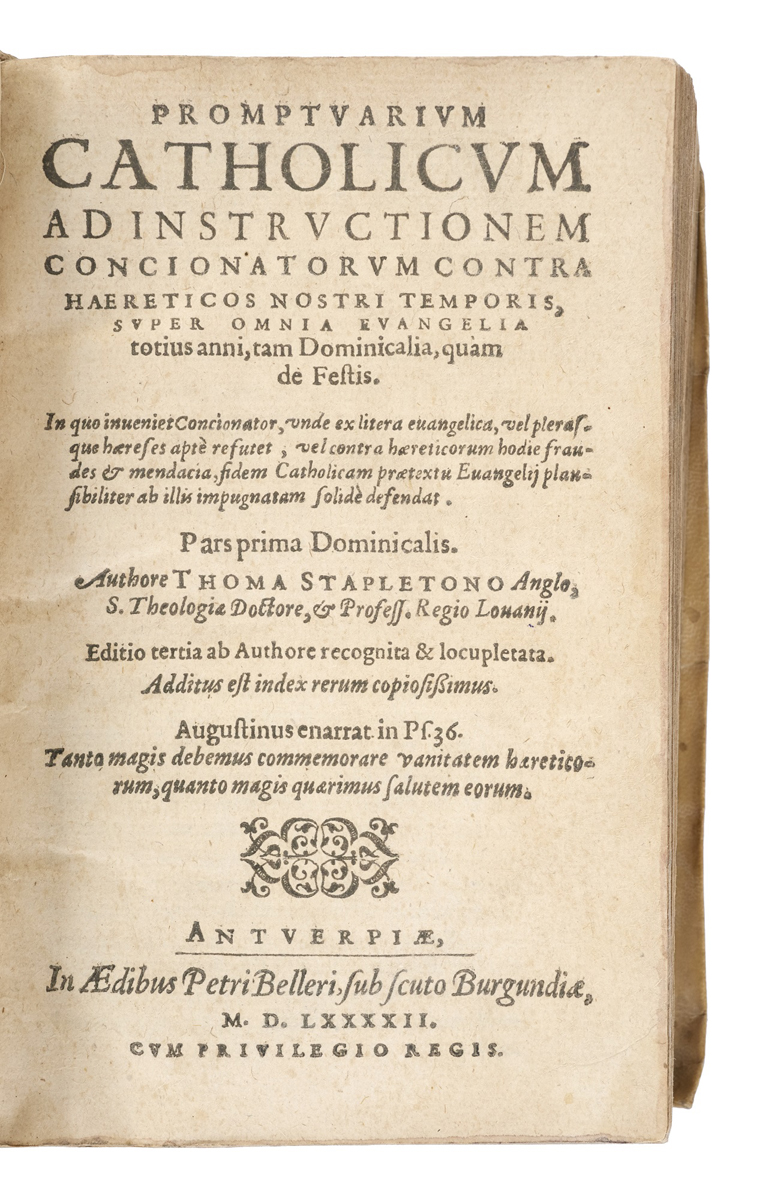 PROMPTVARIVM
CATHOLICVM
AD INSTRVCTIONEM
CONCIONATORVM CONTRA
HAERETICOS NOSTRI TEMPORIS,
SVPER OMNIA EVANGELIA
totius anni, tam Dominicalia, quàm
de Feſtis.
In quo inueniet Concionator, vnde ex litera euangelica, vel pleraſ-
que hæreſes aptè refutet, vel contra hæreticorum hodie frau-
des & mendacia, fidem Catholicam prætextu Euangelij plau-
ſibiliter ab illis impugnatam ſolidè defendat.
Pars prima Dominicalis.
Authore THOMA STAPLETONO Anglo,
S. Theologiæ Doctore, & Profeſſ. Regio Louanij.
Editio tertia ab Authore recognita & locupletata.
Additus eſt index rerum copioſiſsimus.
Auguſtinus enarrat. in Pſ.36.
Tanto magis debemus commemorare vanitatem hæretico-
rum, quanto magis quærimus ſalutem eorum.
ANTVERPIÆ,
In Ædibus Petri Belleri, ſub ſcuto Burgundiæ,
M. D. LXXXXII.
CVM PRIVILEGIO REGIS.